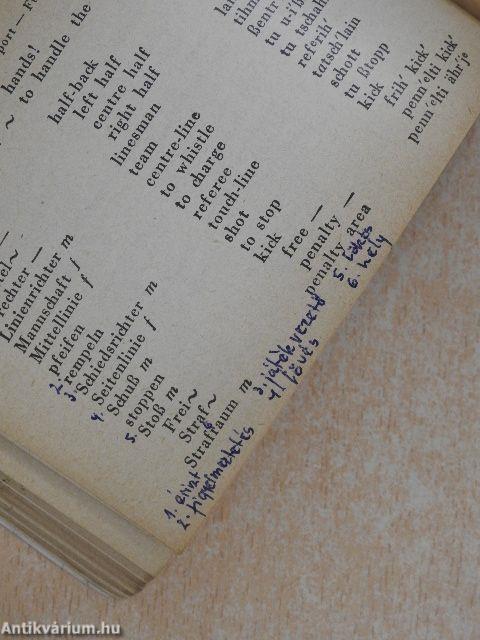 port — F
hands!
~ to handle the
half-back
left half
centre half
right half
linesman
team
centre-line
to whistle
to charge
referee
touch-line
shot
to stop
kick
free —
penalty —
penalty area
tu u-i'ß
tu tschah
referih'
tatsch'lain
schott
tu ßtopp
kick
frih' kick'
penn'elti kick'
penn'elti ähr'je
rechter —
Linienrichter m
Mannschaft f
Mittellinie f
2. pfeifen
3 rempeln
Schiedsrichter m
4 Seitenlinie f
Schuß m
5. stoppen
Stoß m
Frei~
Straf~
6 Strafraum m
1. érint
2. figyelmeztetés
3. játékvezető
4 lövés
5. lökés
6. hely
Antikvárium.hu